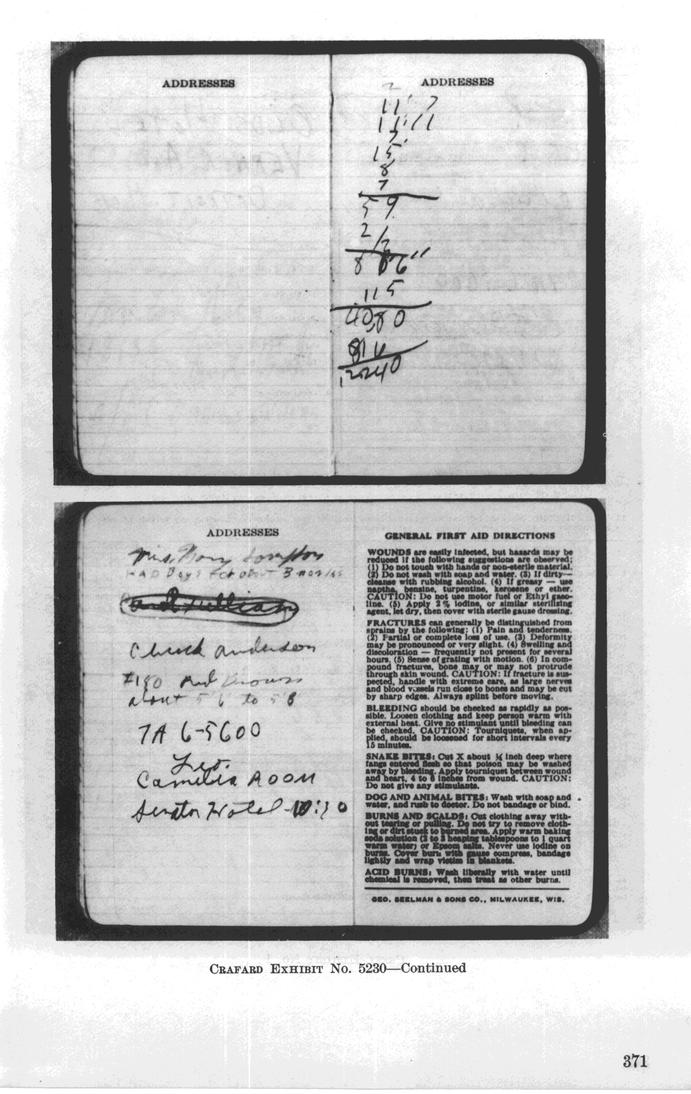 ADDRESSES
ADDRESSES
11
15
8
7
59
2
8
115
4080
816
12240
ADDRESSES
Mrs. Mary
Days
Chuck Anderson
#180
about 5'6 to 5'8
TA 6-5600
Camelia ROOM
Senator Hotel
GENERAL FIRST AID DIRECTIONS
WOUNDS are easily infected, but hazards may be
reduced if the following suggestions are observed:
(1) Do not touch with hands or non-sterile material.
(2) Do not wash with soap and water. (3) If dirty—
cleanse with rubbing alcohol. (4) If greasy — use
naptha, benzine, turpentine, kerosene or ether.
CAUTION: Do not use motor fuel or Ethyl gaso-
line. (5) Apply 2% iodine, or similar sterilizing
agent, let dry, then cover with sterile gauze dressing.
FRACTURES can generally be distinguished from
sprains by the following: (1) Pain and tenderness.
(2) Partial or complete loss of use. (3) Deformity
may be pronounced or very slight. (4) Swelling and
discoloration — frequently not present for several
hours. (5) Sense of grating with motion. (6) In com-
pound fractures, bone may or may not protrude
through skin wound. CAUTION: If fracture is sus-
pected, handle with extreme care, as large nerves
and blood vessels run close to bones and may be cut
by sharp edges. Always splint before moving.
BLEEDING should be checked as rapidly as pos-
sible. Loosen clothing and keep person warm with
external heat. Give no stimulant until bleeding can
be checked. CAUTION: Tourniquets, when ap-
plied, should be loosened for short intervals every
15 minutes.
SNAKE BITES: Cut X about ¼ inch deep where
fangs entered flesh so that poison may be washed
away by bleeding. Apply tourniquet between wound
and heart, 4 to 6 inches from wound. CAUTION:
Do not give any stimulants.
DOG AND ANIMAL BITES: Wash with soap and
water, and rush to doctor. Do not bandage or bind.
BURNS AND SCALDS: Cut clothing away with-
out tearing or pulling. Do not try to remove cloth-
ing or dirt stuck to burned area. Apply warm baking
soda solution (2 to 3 heaping tablespoons to 1 quart
warm water) or Epsom salts. Never use iodine on
burns. Cover burn with gauze compress, bandage
lightly and wrap victim in blankets.
ACID BURNS: Wash liberally with water until
chemical is removed, then treat as other burns.
GEO. BEELMAN & SONS CO., MILWAUKEE, WIS.
CRAFARD EXHIBIT No. 5230—Continued
371